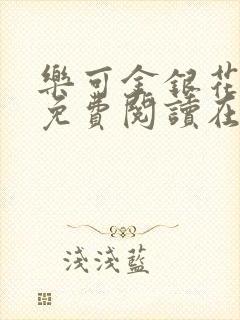 樂可金銀花
免費閱讀在
淺淺藍